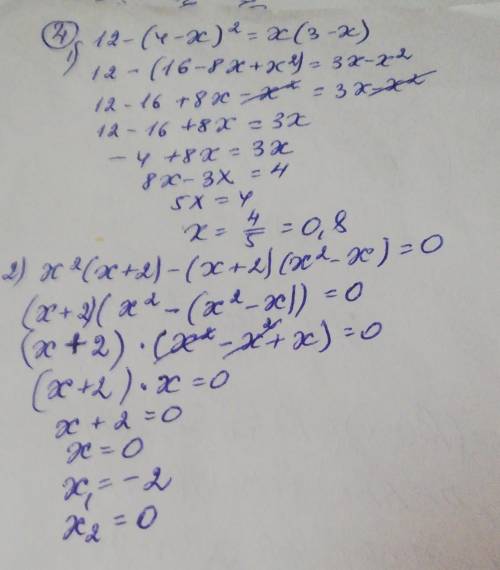 ④
1) 12-(4-x)²=x(3-x)
12-(16-8x+x²)=3x-x²
12-16+8x-x²=3x-x²
12-16+8x=3x
-4+8x=3x
8x-3x=4
5x=4
x=4/5=0,8
2) x²(x+2)-(x+2)(x²-x)=0
(x+2)(x²-(x²-x))=0
(x+2)·(x²-x²+x)=0
(x+2)·x=0
x+2=0
x=0
x₁=-2
x₂=0